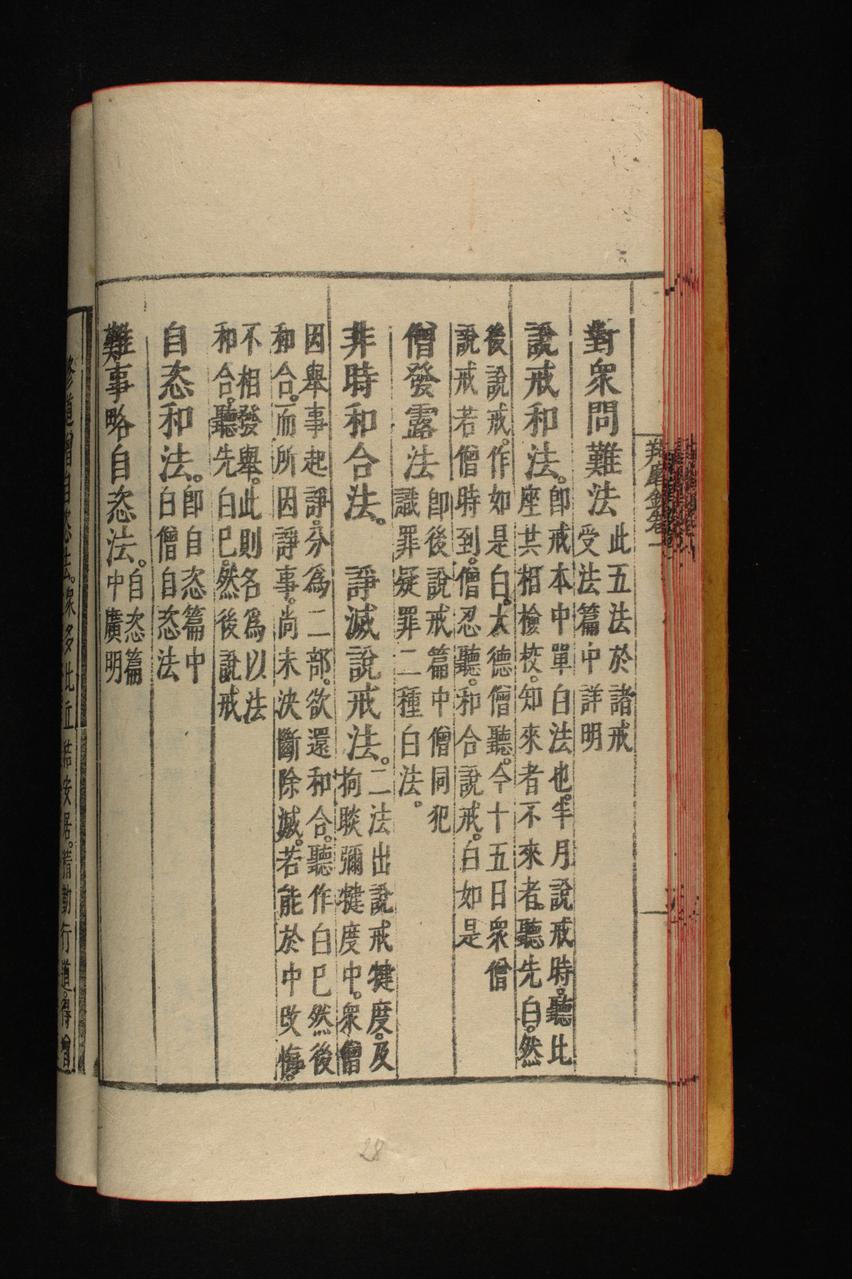 對衆問難法此五法於諸戒
受法篇中詳明
說戒和法。即戒本中單白法也。半月說戒時。聽比
座共相檢校。知來者不來者。聽先白。然
後說戒。作如是白。大德僧聽。今十五日衆僧
說戒若僧時到。僧忍聽。和合說戒。白如是
僧發露法即後說戒篇中僧同犯
識罪疑罪二種白法。
非時和合法。 諍滅說戒法。二法出說戒犍度。及
拘睒彌犍度中。衆僧
因舉事起諍。分爲二部。欲還和合。聽作白已然後
和合。而所因諍事。尚未決斷除滅。若能於中改悔。
不相發舉。此則各爲以法
和合。聽先白已然後說戒
自恣和法。即自恣篇中
白僧自恣法
難事略自恣法。自恣篇
中廣明
修道增自恣法。衆多比丘結安居。精勤行道。得增
羯磨
28